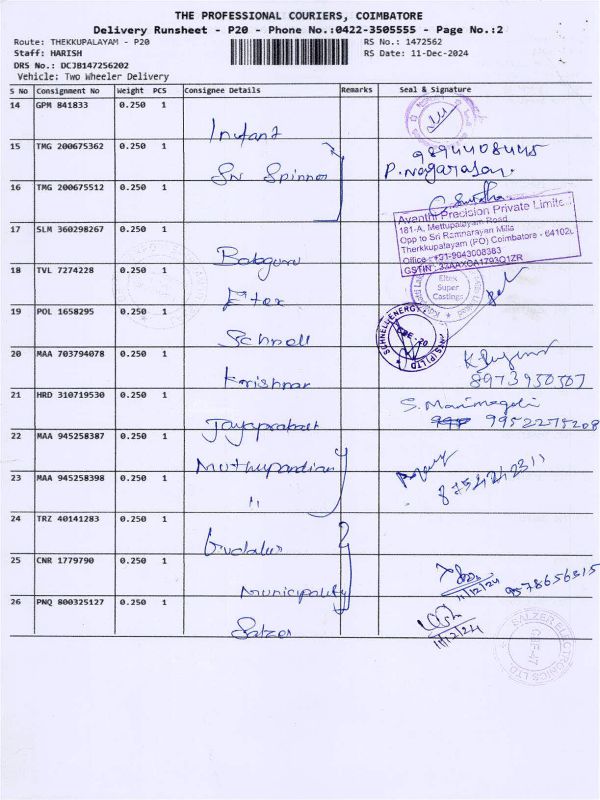 THE PROFESSIONAL COURIERS, COIMBATORE
Delivery Runsheet - P20 - Phone No.:0422-3505555 - Page No.:2
Route: THEKKUPALAYAM - P20
RS No.: 1472562
Staff: HARISH
RS Date: 11-Dec-2024
DRS No.: DCJB147256202
Vehicle: Two Wheeler Delivery
S No Consignment No Weight PCS Consignee Details Remarks Seal & Signature
14 GPM 841833 0.250 1
15 TMG 200675362 0.250 1 9894408445
Sri Spinner P. Nagarasan.
16 TMG 200675512 0.250 1
Avanthi Precision Private Limite
181-A, Mettupalayam Road
Opp to Sri Ramnarayan Mills
Therkkupalayam (PO) Coimbatore - 64102
Office : +91-9043008383
GSTIN : 33AAXCA1793Q1ZR
17 SLM 360298267 0.250 1
18 TVL 7274228 0.250 1
Eltek
Super
Castings
19 POL 1658295 0.250 1
Schnell SCHNELL ENERGY
CBE - 20
20 MAA 703794078 0.250 1
Krishnan 8973950507
21 HRD 310719530 0.250 1 S. Manimegali
Jayaprakash 9952275208
22 MAA 945258387 0.250 1
Muthupandian
23 MAA 945258398 0.250 1 8754242311
"
24 TRZ 40141283 0.250 1
Gudalur
25 CNR 1779790 0.250 1
Municipality 11/12/24 9578656315
26 PNQ 800325127 0.250 1
Salzer 11/12/24
SALZER ELECTRONICS LTD.
CBE-47